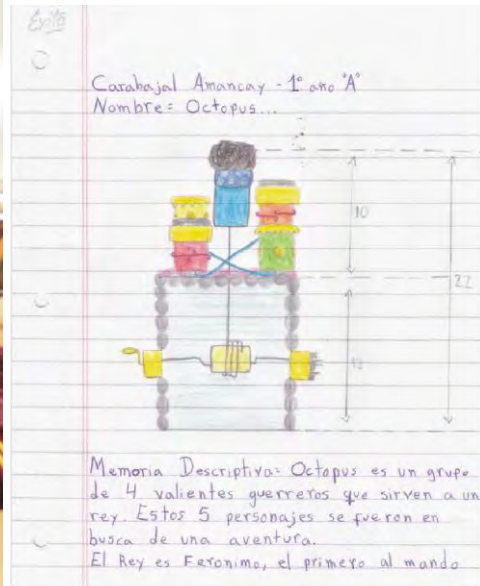 Carabajal Amancay - 1° año "A"
Nombre= Octopus...
10
22
12
Memoria Descriptiva= Octopus es un grupo
de 4 valientes guerreros que sirven a un
rey. Estos 5 personajes se fueron en
busca de una aventura.
El Rey es Feronimo, el primero al mando